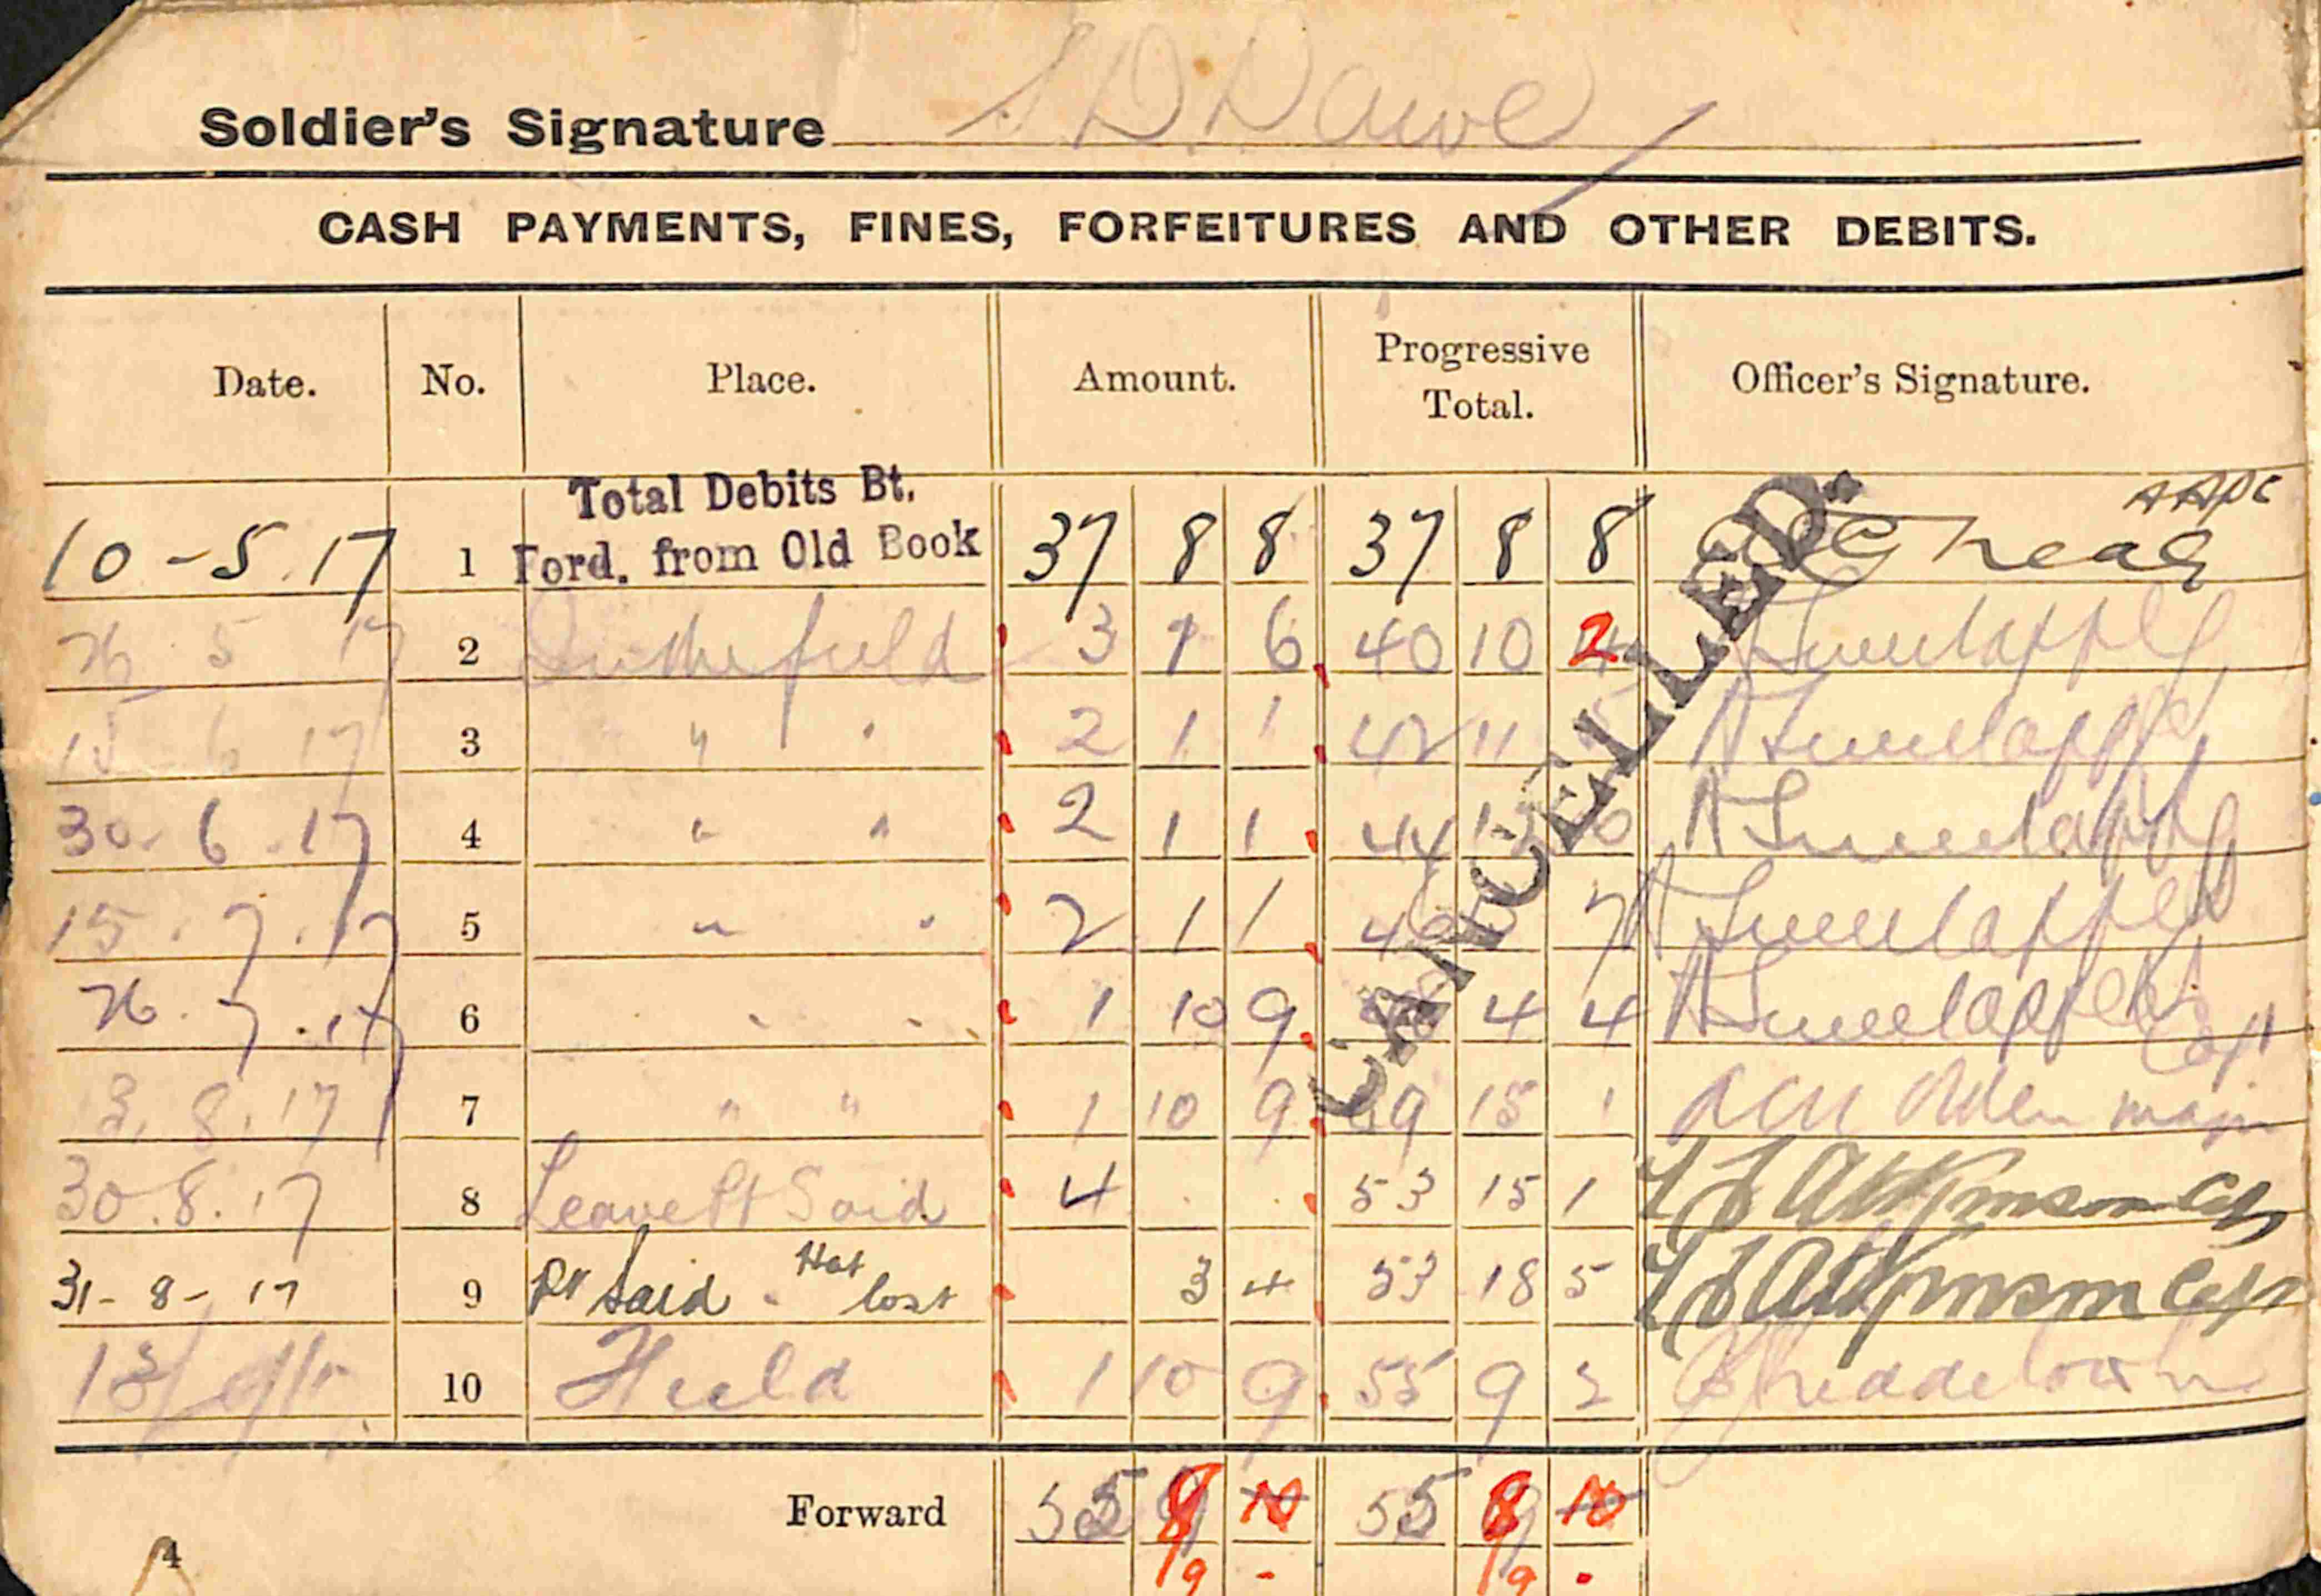 Soldier's Signature S D. Dawe
CASH PAYMENTS, FINES, FORFEITURES AND OTHER DEBITS.
Date. No. Place. Amount. Progressive Total. Officer's Signature.
Total Debits Bt.
10-5.17 1 Ford. from Old Book 37 8 8 37 8 8 AAPC
26 5 17 2 In the field 3 1 6 40 10 2
6 17 3 " " 2 1 1 42 11
30. 6 .17 4 " " 2 1 1 44
15. 7. 17 5 " " 2 1 1 7
26. 7. 17 6 " " 1 10 9 4 4 Capt
3. 8. 17 7 " " 1 10 9 49 15 1 major
30.8.17 8 Leave Pt Said 4 . . 53 15 1 Atkinson Capt
31-8-17 9 Pt Said - Hat lost 3 4 53 18 5 Atkinson Capt
10 Field 1 10 9 55 9 2
CANCELLED.
Forward 55 8 10 55 8 10
9 - 9 .
4